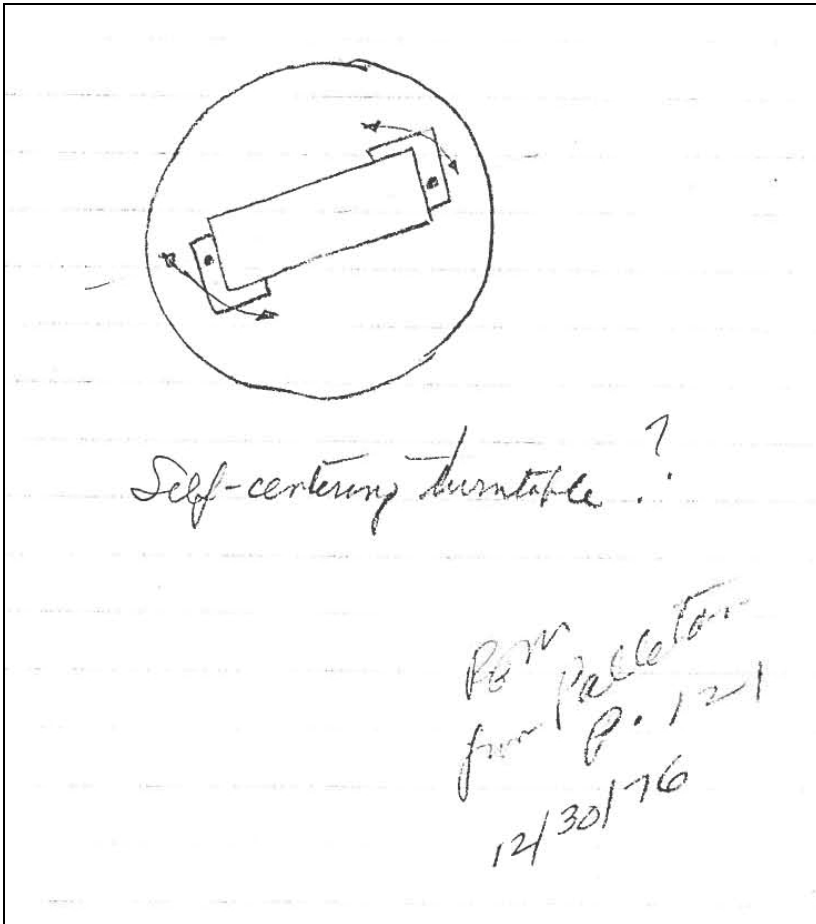 Self-centering turntable ?
PGM
from Palleton
P. 121
12/30/76